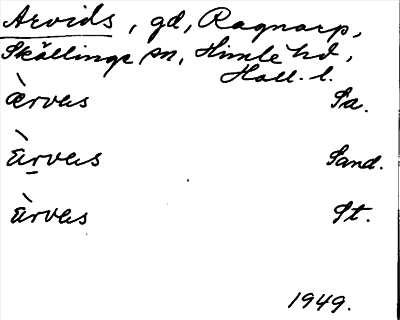 Arvids, gd, Ragnarp,
Skällinge sn, Himle hd,
Hall. l.
ærvas Sa.
ärvas Sand.
ärvas St.
1949.